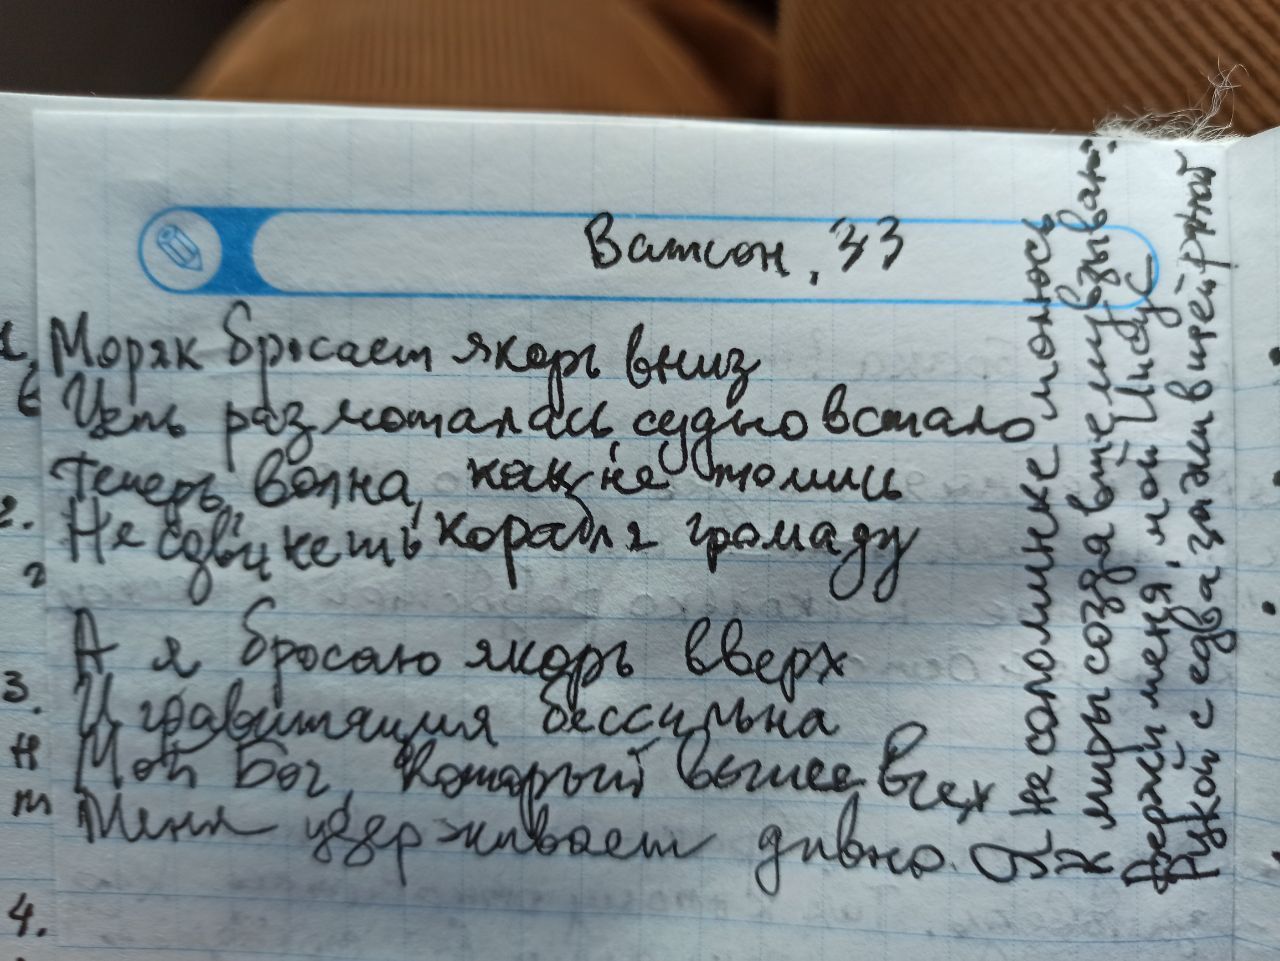 Ватсон, 33
1.
Моряк бросает якорь вниз
Цепь размоталась, судно встало
Теперь волна, как не томись
2.
Не сдвинеть корабля громаду
А я бросаю якорь вверх
3.
И гравитация бессильна
Мой Бог, который выше всех
Меня удерживает дивно.
4.
Я на соломинке молюсь
К миры создавшему взываю:
Держи меня, мой Иисус
Рукой с едва зажившей раной